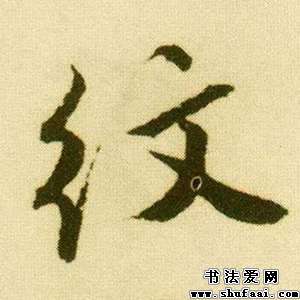 纹
书法爱网
www.shufaai.com